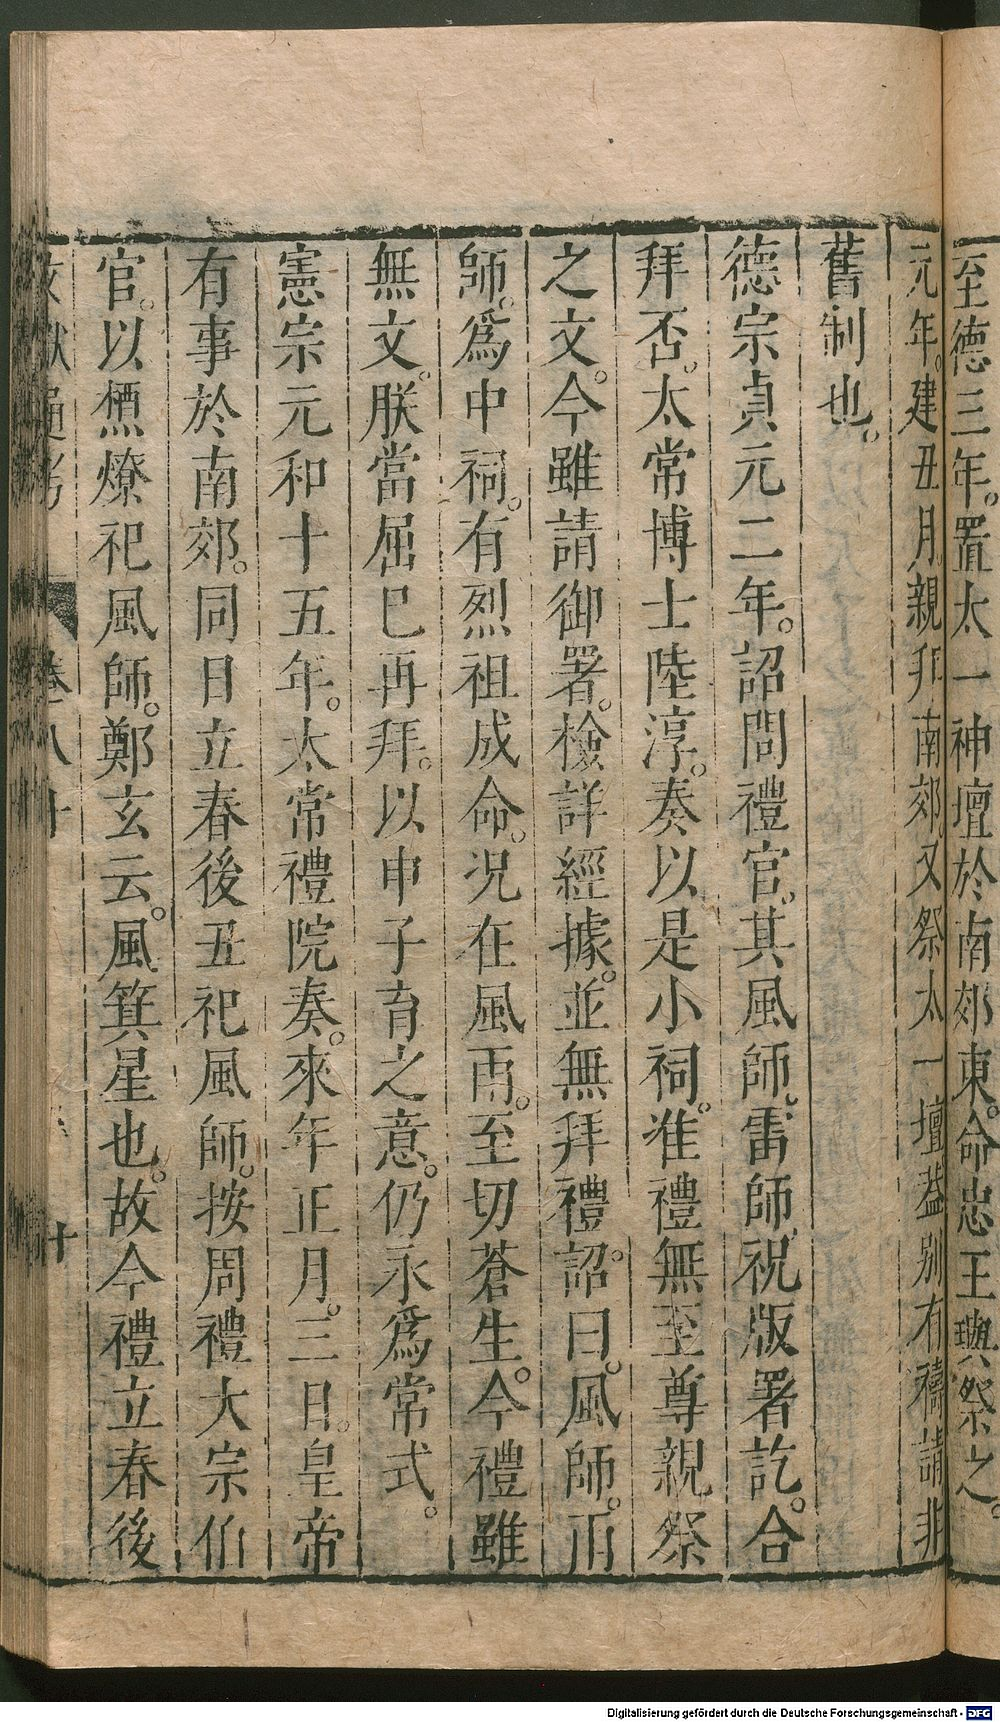 至德三年。置太一神壇於南郊東。命忠王璵祭之。
元年。建丑月。親拜南郊。又祭太一壇葢別有禱請非
舊制也。
德宗貞元二年。詔問禮官。其風師。雷師。祝版署訖。合
拜否。太常博士陸淳。奏以是小祠。准禮無至尊親祭
之文。今雖請御署。檢詳經據。並無拜禮。詔曰。風師。雨
師。爲中祠。有烈祖成命。况在風雨。至切蒼生。今禮雖
無文。朕當屈已再拜。以申子育之意。仍永爲常式。
憲宗元和十五年。太常禮院奏。來年正月。三日。皇帝
有事於南郊。同日立春後丑祀風師。按周禮大宗伯
官。以槱燎祀風師。鄭玄云。風箕星也。故今禮立春後
文獻通考 卷八十 十
Digitalisierung gefördert durch die Deutsche Forschungsgemeinschaft - DFG